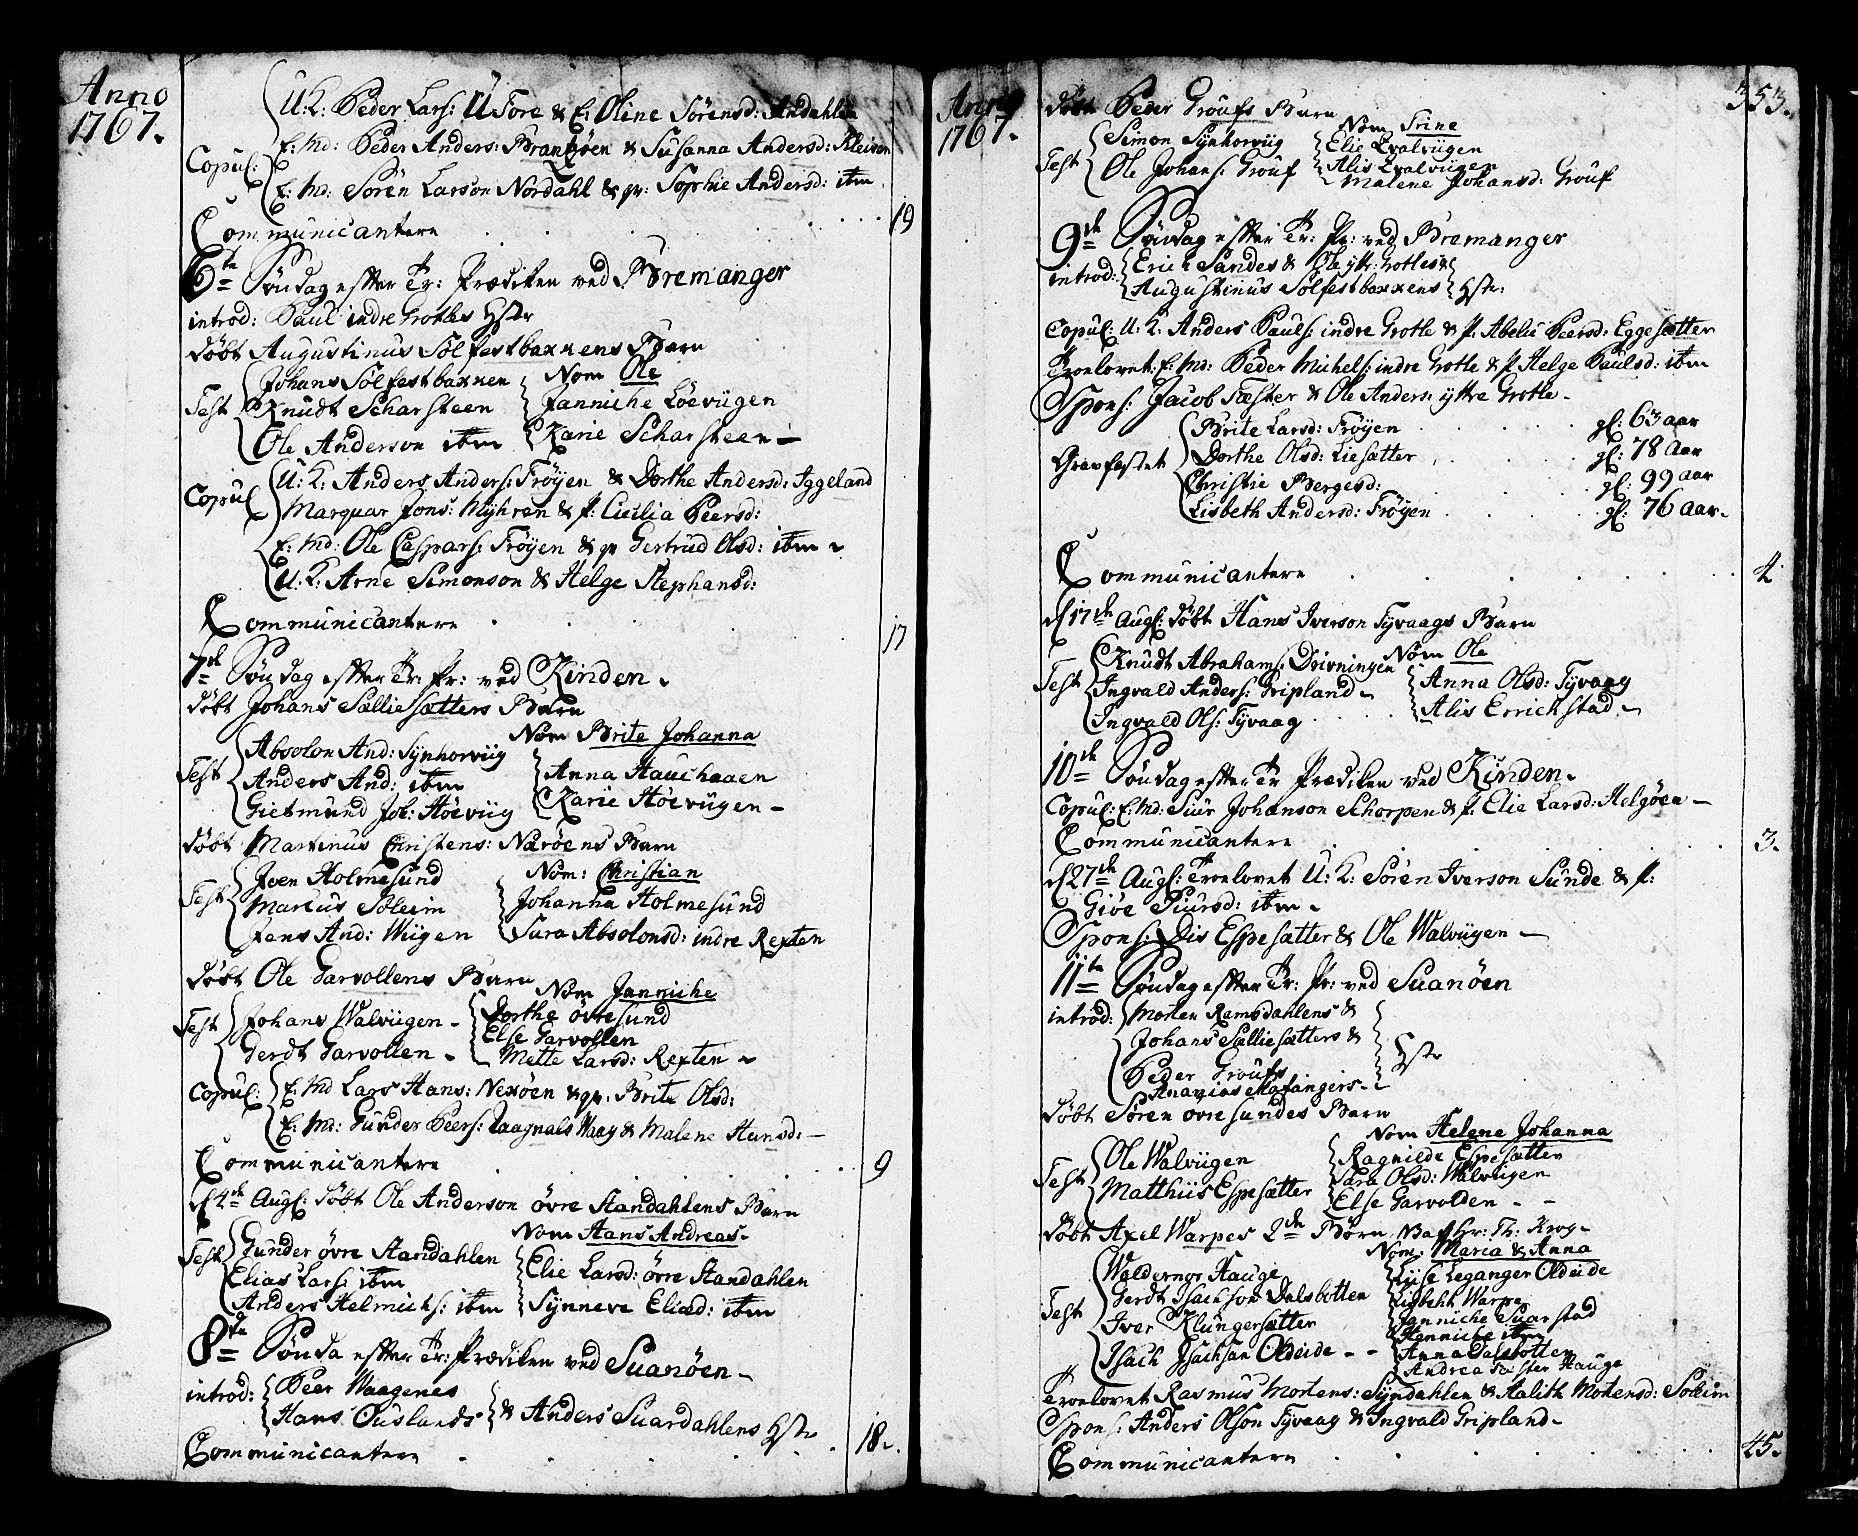 Anno
1767.
U: K: Peder Lars: UFore & E: Oline Sörensd: Andahlen
Copul: E: Md: Peder Anders: Brandöen & Susanna Andersd: Kleiven
E: Md: Sören Larson Nordahl & qv: Sophie Andersd: itm
Communicantere 19
6te Söndag efter Tr: Prædiken ved Bremanger
introd: Paul indre Grotles Hstr
döbt Augustinus Solfestbakkens Barn
Nom Ole
Test Johans Solfestbakken
Knudt Scharsteen
Ole Anderson itm
Janniche Löeviigen
Karie Scharsteen
Copul U: K: Anders Anders: Fröyen & Dorthe Andersd: Iggeland
Marquar Jons: Myhren & P: Cicilia Peersd:
E: Md: Ole Caspars: Fröyen & qv Gertrud Olsd: itm
U: K: Arne Simonson & Helge Stephansd:
Communicantere 17
7de Söndag efter Tr: Pr: ved Kinden
döbt Johans Sælliesætters Barn
Nom Brite Johanna
Test Absolon And: Synhorviig
Anders And: itm
Gietmund Joh: Höeviig
Anna Hauchaaen
Karie Höeviigen
döbt Martinus Christens: Naröens Barn
Nom: Christian
Test Iven Holmesund
Marcus Soleim
Jens And: Wiigen
Johanna Holmesund
Sura Absolonsd: indre Rexten
döbt Ole Garvollens Barn
Nom Janniche
Test Johans Walviigen
Gerdt Garvollen
Dorthe övresund
Else Garvollen
Mette Larsd: Rexten
Copul: E: Md Lars Hans: Nexöen & qv: Brite Olsd:
E: Md: Gunder Peers: Raagnals Waag & Malene Hansd:
Communicantere 9
d 4de Aug: döbt Ole Anderson övre Standahlens Barn
Nom Hans Andreas
Test Gunder övre Standahlen
Elias Lars: itm
Anders Helmichs: itm
Elie Larsd: övre Standahlen
Synneve Eliæd: itm
8de Sönda efter Tr: Prædiken ved Suanöen
introd: Peer Waagenes
Hans Ouslands & Anders Suardahlens Hstr
Communicantere 18.
Anno
1767.
353.
döbt Peder Groufs Barn
Nom Srine
Test Simon Synhorviig
Ole Johans: Grouf
Elie Qvalviigen
Alis Qvalviigen
Malene Johansd: Grouf
9de Söndag efter Tr: Pr: ved Bremanger
introd: Erich Sandes & Ole ytt: Grotles &
Augustinus Solfestbakkens Hstr:
Copul: U: K: Anders Pauls: indre Grotle & P: Abelie Peersd: Eggesætter
Troelovet: E: Md: Peder Michels: indre Grotle & P Helge Paulsd: itm
Spons: Jacob Tæster & Ole Anders: yttre Grotle
Gravfæstet Brite Larsd: Fröyen gl: 63 aar
Dorthe Olsd: Liesætter gl: 78 Aar
Christie Bergesd: gl: 99 aar
Lisbeth Andersd: Fröyen gl: 76 aar
Communicantere 4
d 17de Aug: döbt Hans Iverson Tyvaags Barn
Nom Ole
Test Knudt Abrahams: Drivningen
Ingvald Anders: Gripland
Ingvald Ols: Tyvaag
Anna Olsd: Tyvaag
Alis Errichstad
10de Söndag efter Tr Prædiken ved Kinden
Copul: E: Md: Siur Johanson Schorpen & P: Elie Larsd: Helgöen
Communicantere 3.
d 27de Aug: Troelovet U: K: Sören Iverson Sunde & P:
Giöe Siursd: itm
Spons: Dis Espesætter & Ole Walviigen
11te Söndag efter Tr: Pr: ved Suanöen
introd: Morten Ramsdahlens &
Johans Sælliesætters &
Peder Groufs
Ananias Mafangers Hstr
döbt Sören övresundes Barn
Nom Helene Johanna
Test Ole Walviigen
Matthiis Espesætter
Ragnilde Espesætter
Sara Olsd: Walviigen
Else Garvolden
döbt Axel Warpes 2de Börn
Nom: Maria & Anna
Test Waldernor Hauge
Gerdt Isachson Dalsbotten
Iver Klungersætter
Isach Isachsan Oldeide
Liise Leganger Oldeide
Lisbeht Warpe
Janniche Suarstad
Henniche itm
Anna Dalsbotten
Andrea Hauge
Troelovet Rasmus Mortens: Syndahlen & Aalith Mortensd: Soleim
Spons: Anders Olson Tyvaag & Ingvald Gripland
Communicantere 45.